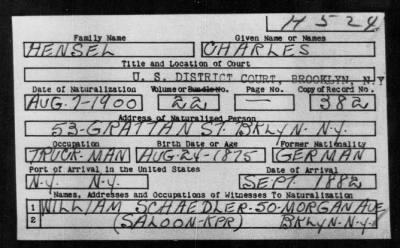 H 524
Family Name Given Name or Names
HENSEL CHARLES
Title and Location of Court
U. S. DISTRICT COURT, BROOKLYN, N.Y
Date of Naturalization Volume or Bundle No. Page No. Copy of Record No.
AUG. 7-1900 22 — 382
Address of Naturalized Person
53-GRATTAN ST. BKLYN. N.Y.
Occupation Birth Date or Age Former Nationality
TRUCK-MAN AUG-24-1875 GERMAN
Port of Arrival in the United States Date of Arrival
N.Y. N.Y. SEPT. 1882
Names, Addresses and Occupations of Witnesses To Naturalization
1 WILLIAM SCHAEDLER-50-MORGAN AVE
2 (SALOON-KPR) BKLYN-N-Y-